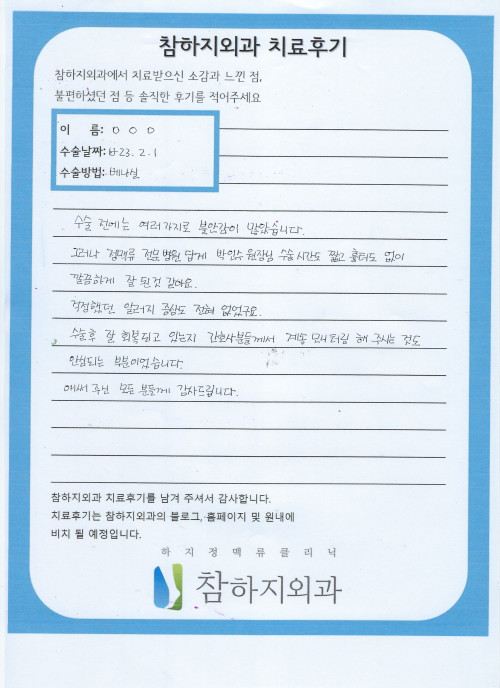 참하지외과 치료후기
참하지외과에서 치료받으신 소감과 느낀 점,
불편하셨던 점 등 솔직한 후기를 적어주세요
이 름: ㅇ ㅇ ㅇ
수술날짜: 23. 2. 1
수술방법: 베나실
수술 전에는 여러가지로 불안감이 많았습니다.
그러나 정맥류 전문병원 답게 박인수 원장님 수술시간도 짧고 흉터도 없이
깔끔하게 잘 된것 같아요.
걱정했던 알러지 증상도 전혀 없었구요.
수술후 잘 회복되고 있는지 간호사분들께서 계속 모니터링 해 주시는 것도
안심되는 부분이었습니다.
애써 주신 모든 분들께 감사드립니다.
참하지외과 치료후기를 남겨 주셔서 감사합니다.
치료후기는 참하지외과의 블로그, 홈페이지 및 원내에
비치 될 예정입니다.
하지정맥류클리닉
참하지외과